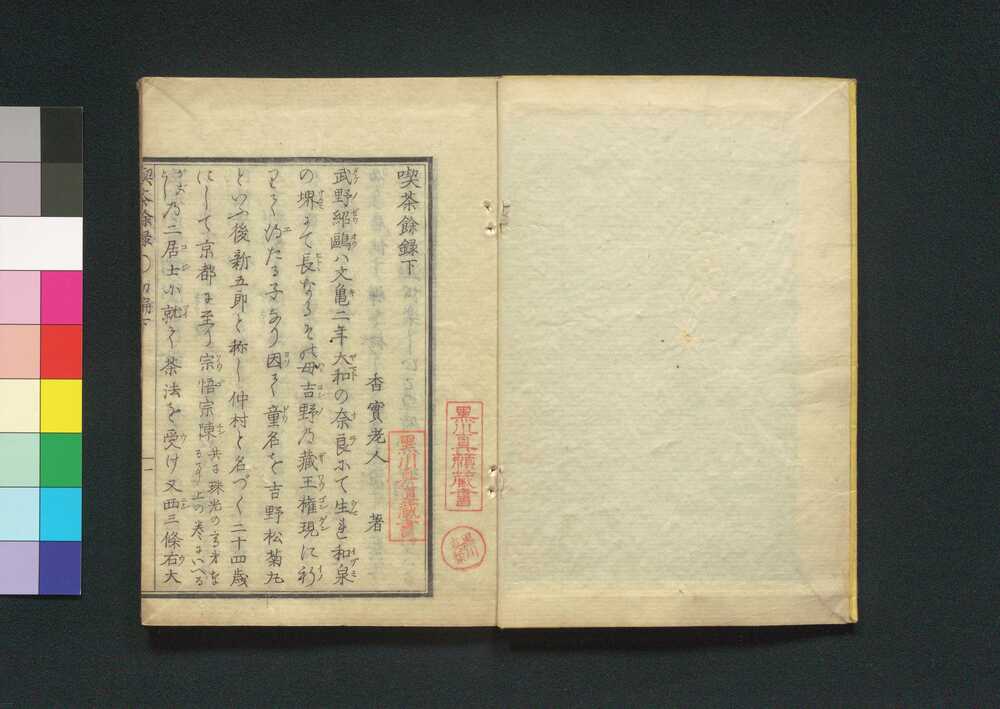 喫茶餘録下
香實老人 著
武野紹鷗ハ文亀二年大和の奈良にて生れ和泉
の堺にて長なる其母吉野乃藏王権現に祈
りて得たる子なり因て童名を吉野松菊丸
といふ後新五郎と称し仲村と名づく二十四歳
にして京都に至り宗悟宗陳共に珠光の高弟なり上の巻にいへる
乃二居士に就て茶法を受け又西三條右大
喫茶餘録
黒川真頼蔵書
黒川真道蔵書